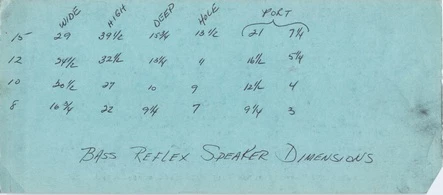 WIDE HIGH DEEP HOLE PORT
15 29 39 1/2 15 3/4 13 1/2 21 7 1/4
12 24 1/2 32 1/2 13 1/4 " 16 1/2 5 1/4
10 20 1/2 27 10 9 12 1/2 4
8 16 3/4 22 9 1/4 7 9 1/4 3
BASS REFLEX SPEAKER DIMENSIONS